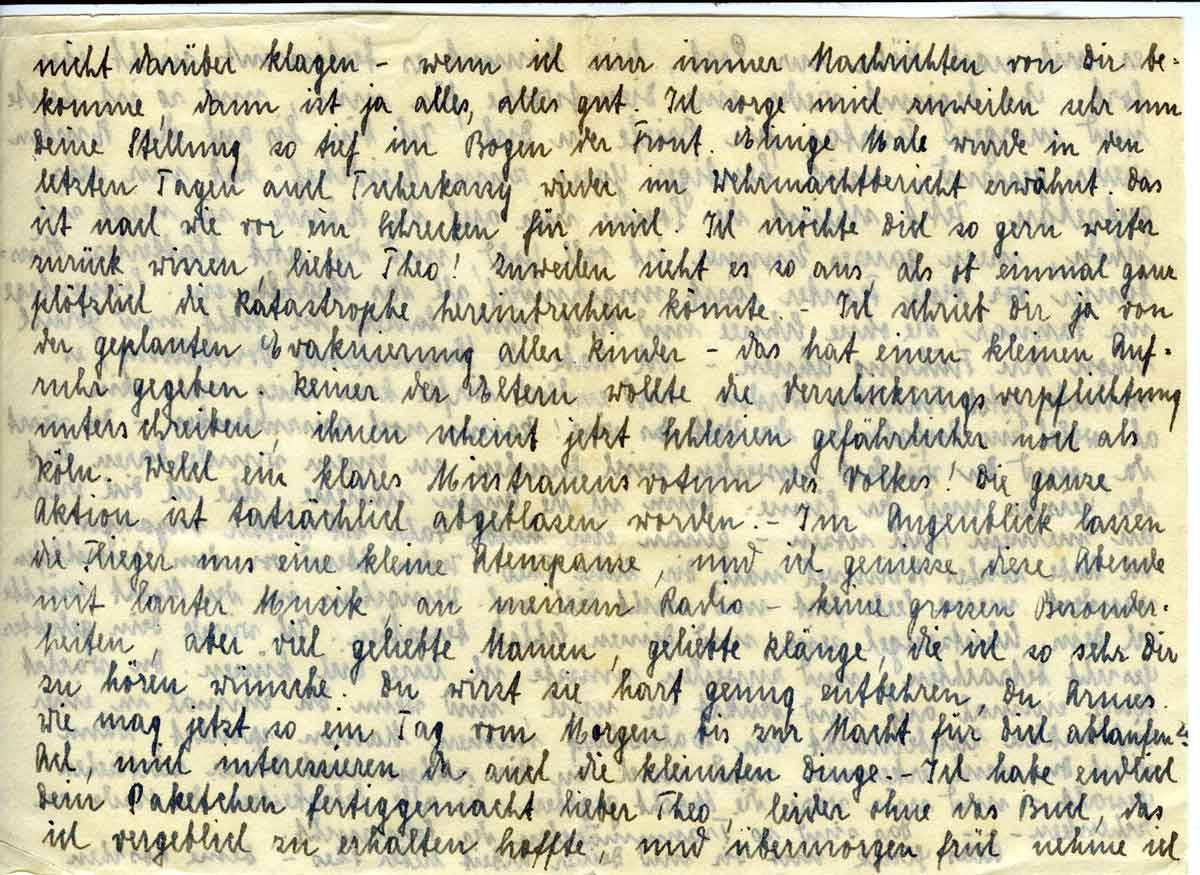 nicht darüber klagen – wenn ich nur immer Nachrichten von Dir be-
komme, dann ist ja alles, alles gut. Ich sorge mich zuweilen sehr um
Deine Stellung so tief im Bogen der Front. Einige Male wurde in den
letzten Tagen auch Tscherkassy wieder im Wehrmachtbericht erwähnt. Das
ist nach wie vor ein Schrecken für mich. Ich möchte Dich so gern weiter
zurück wissen, lieber Theo! Zuweilen sieht es so aus, als ob einmal ganz
plötzlich die Katastrophe hereinbrechen könnte. – Ich schrieb Dir ja von
der geplanten Evakuierung aller Kinder – das hat einen kleinen Auf-
ruhr gegeben. Keiner der Eltern wollte die Verschickungsverpflichtung
unterschreiben, ihnen scheint jetzt Schlesien gefährlicher noch als
Köln. Welch ein klares Misstrauensvotum des Volkes! Die ganze
Aktion ist tatsächlich abgeblasen worden. – Im Augenblick lassen
die Flieger uns eine kleine Atempause, und ich geniesse diese Abende
mit lauter Musik, an meinem Radio – keine grossen Besonder-
heiten, aber viel geliebte Namen, geliebte Klänge, die ich so sehr Dir
zu hören wünsche. Du wirst sie hart genug entbehren, Du Armes.
Wie mag jetzt so ein Tag vom Morgen bis zur Nacht für Dich ablaufen?
Ach, mich interessieren da auch die kleinsten Dinge. – Ich habe endlich
Dein Paketchen fertiggemacht lieber Theo, leider ohne das Buch, das
ich vergeblich zu erhalten hoffte, und übermorgen früh nehme ich